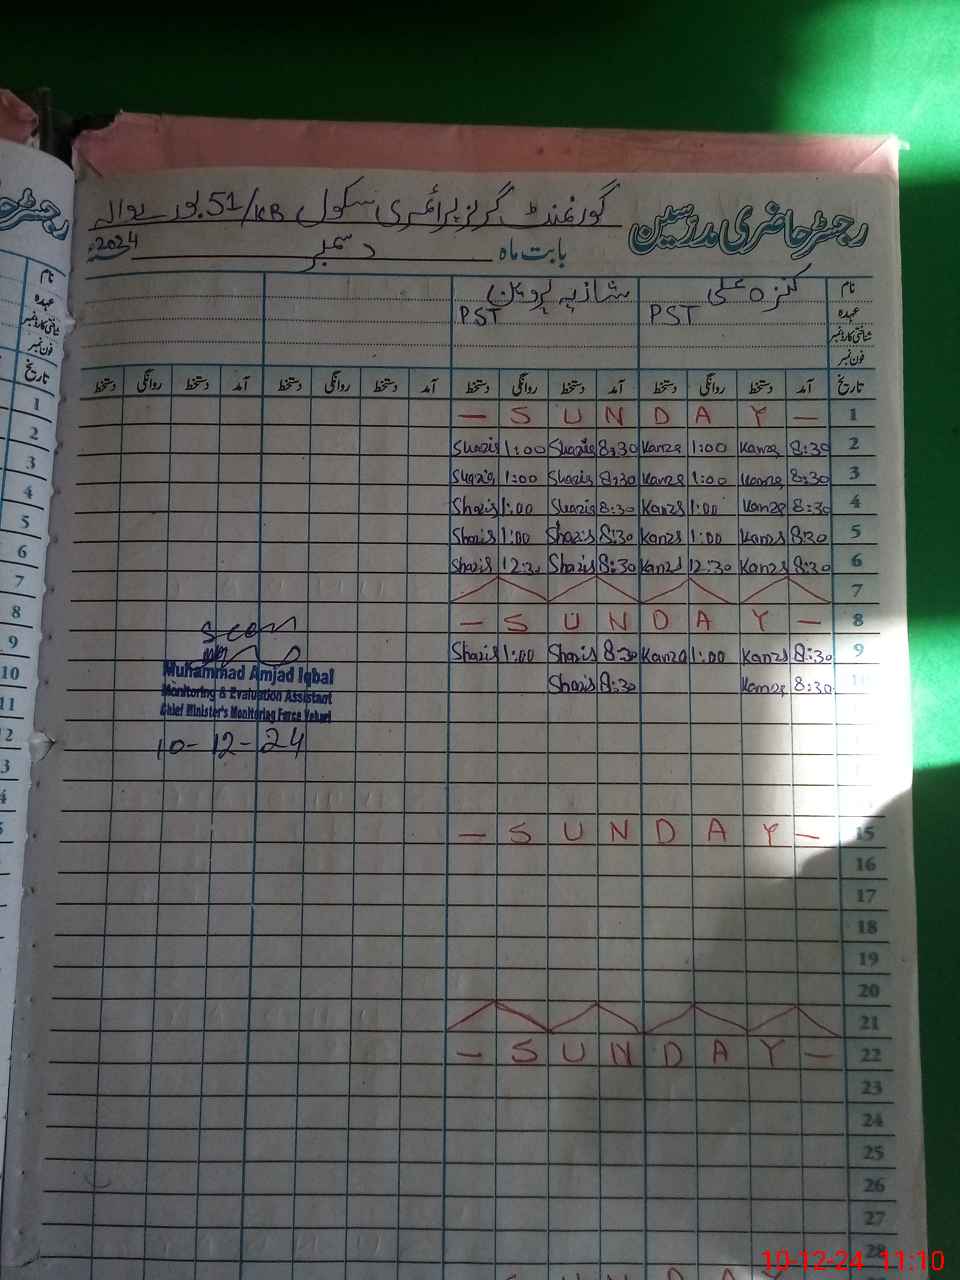 رجسٹر حاضری مدرسین گورنمنٹ گرلز پرائمری سکول 51/KB
بابت ماہ دسمبر 2024ء
نام کنزہ علی شازیہ پروین
عہدہ PST PST
شناختی کارڈ نمبر
فون نمبر
تاریخ آمد دستخط روانگی دستخط آمد دستخط روانگی دستخط آمد دستخط روانگی دستخط آمد دستخط روانگی دستخط
- S U N D A Y - 1
Shazia 1:00 Shazia 8:30 Kanza 1:00 Kanza 8:30 2
Shazia 1:00 Shazia 8:30 Kanza 1:00 Kanza 8:30 3
Shazia 1:00 Shazia 8:30 Kanza 1:00 Kanza 8:30 4
Shazia 1:00 Shazia 8:30 Kanza 1:00 Kanza 8:30 5
Shazia 12:30 Shazia 8:30 Kanza 12:30 Kanza 8:30 6
7
- S U N D A Y - 8
Shazia 1:00 Shazia 8:30 Kanza 1:00 Kanza 8:30 9
Shazia 8:30 Kanza 8:30 10
Seen
Muhammad Amjad Iqbal
Monitoring & Evaluation Assistant
Chief Minister's Monitoring Force Vehari
10-12-24
- S U N D A Y - 15
16
17
18
19
20
21
- S U N D A Y - 22
23
24
25
26
27
28
S U N D A Y
رجسٹر
نام
عہدہ
شناختی کارڈ نمبر
فون نمبر
تاریخ
1
2
3
4
5
6
7
8
9
10
11
12
10-12-24 11:10